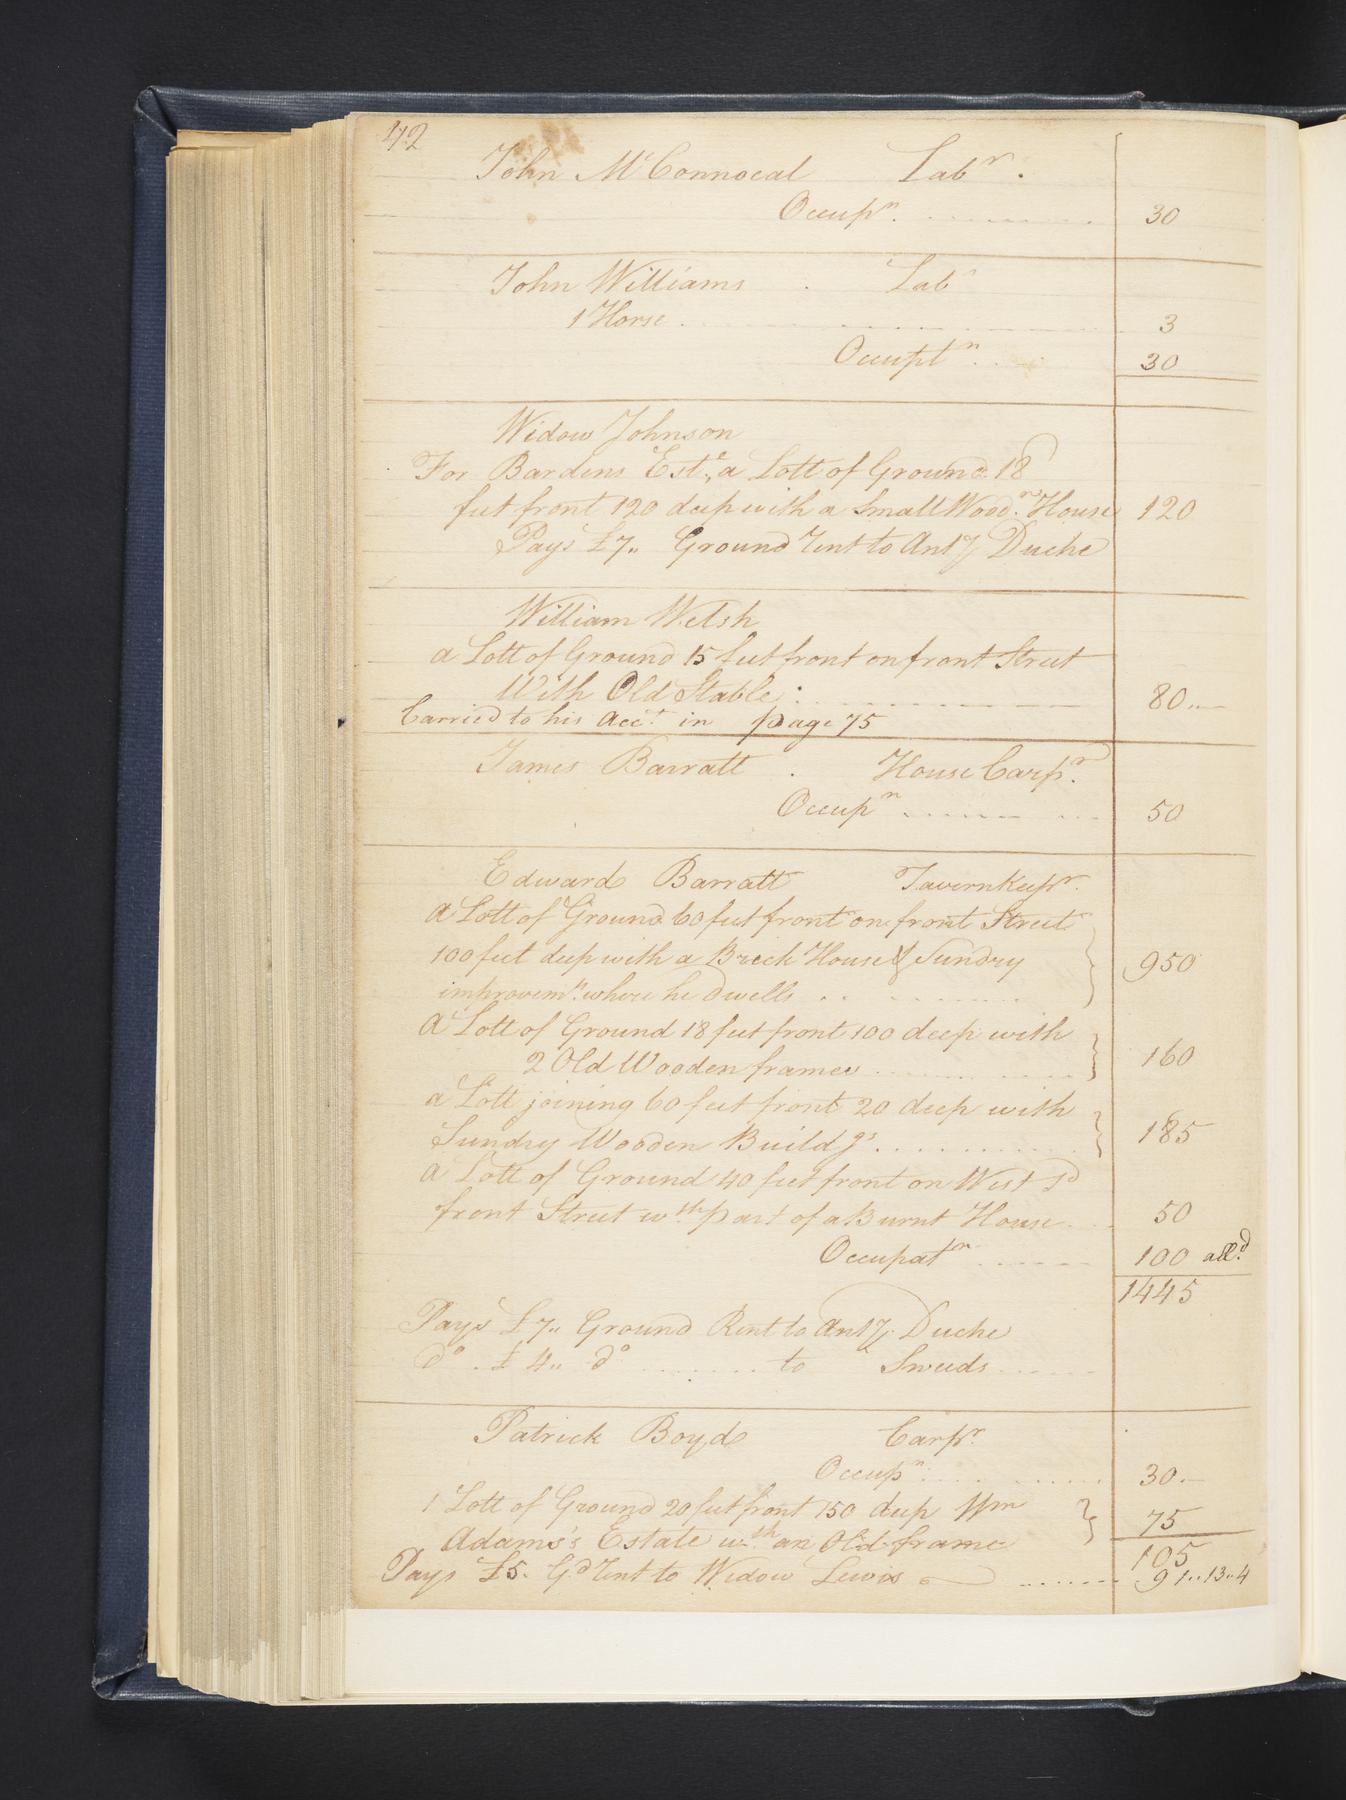 42
John McConnocal Labr.
Occupn. 30
John Williams Labr
1 Horse 3
Occuptn 30
Widow Johnson
For Bardens Este, a Lott of Ground 18
feet front 120 deep with a Small Woodn. House 120
Pays £7,, Ground Rent to Anty Duche
William Welsh
a Lott of Ground 15 feet front on front Street
With Old Stable 80
Carried to his Acct. in page 75
James Barratt House Carpr.
Occupn 50
Edward Barratt Tavernkeepr.
A Lott of Ground 60 feet front on front Street
100 feet deep with a Brick House & Sundry 950
improvemts. where he Dwells
A Lott of Ground 18 feet front 100 deep with
2 Old Wooden frames 160
a Lott joining 60 feet front 20 deep with
Sundry Wooden Buildgs. 185
A Lott of Ground 40 feet front on West Sd
front Street wth part of a Burnt House 50
Occupatn 100 alld.
1445
Pays £7,, Ground Rent to Anty. Duche
do. £4,, do to Sweeds
Patrick Boyd Carpr.
Occupn. 30
1 Lott of Ground 20 feet front 150 deep Wm
Adams's Estate wth. an Old frame 75
105
Pays £5. Gd Rent to Widow Lewis 91,,13,,4